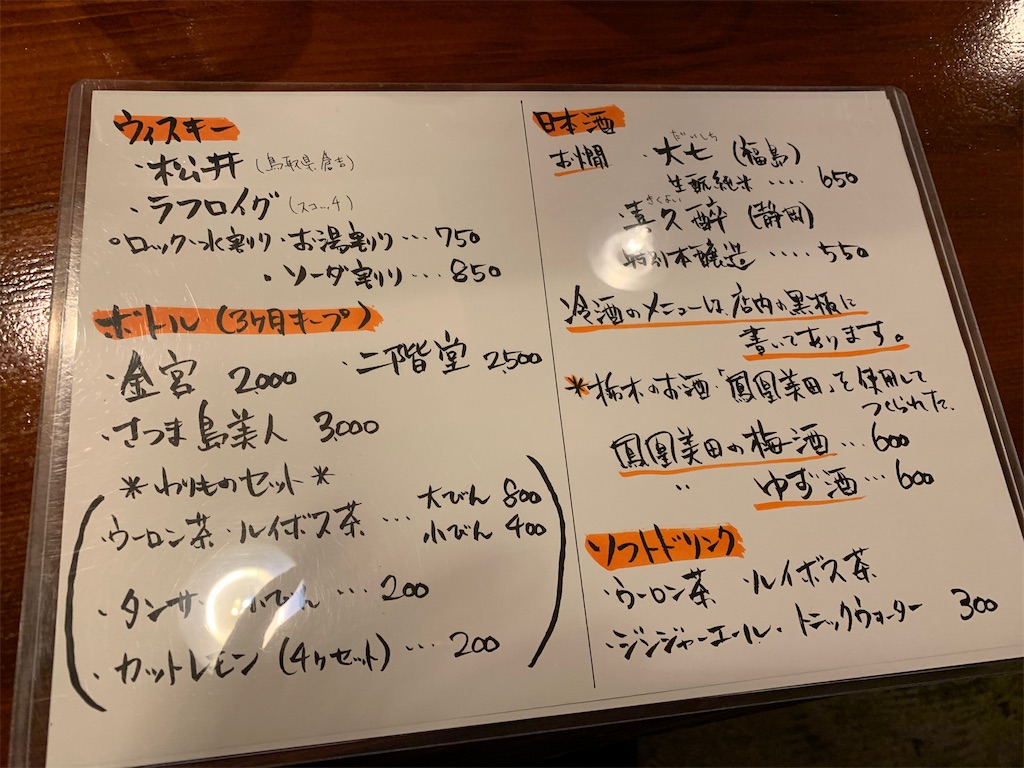 ウィスキー
・松井 (鳥取県倉吉)
・ラフロイグ (スコッチ)
○ロック・水割り・お湯割り…750
・ソーダ割り…850
ボトル (3ヶ月キープ)
・金宮 2,000 ・二階堂 2500
・さつま島美人 3,000
＊わりものセット＊
・ウーロン茶・ルイボス茶 … 大びん 800
小びん 400
・タンサ 小びん … 200
・カットレモン (4ヶセット) … 200
日本酒
お燗 ・大七 (福島)
だいしち
生酛純米 ‥‥ 650
・喜久酔 (静岡)
きくよい
特別本醸造 ‥‥ 550
冷酒のメニューは、店内の黒板に
書いてあります。
＊栃木のお酒「鳳凰美田」を使用して
つくられた、
鳳凰美田の梅酒 … 600
〃 ゆず酒 … 600
ソフトドリンク
・ウーロン茶 ・ルイボス茶
・ジンジャーエール・トニックウォーター 300